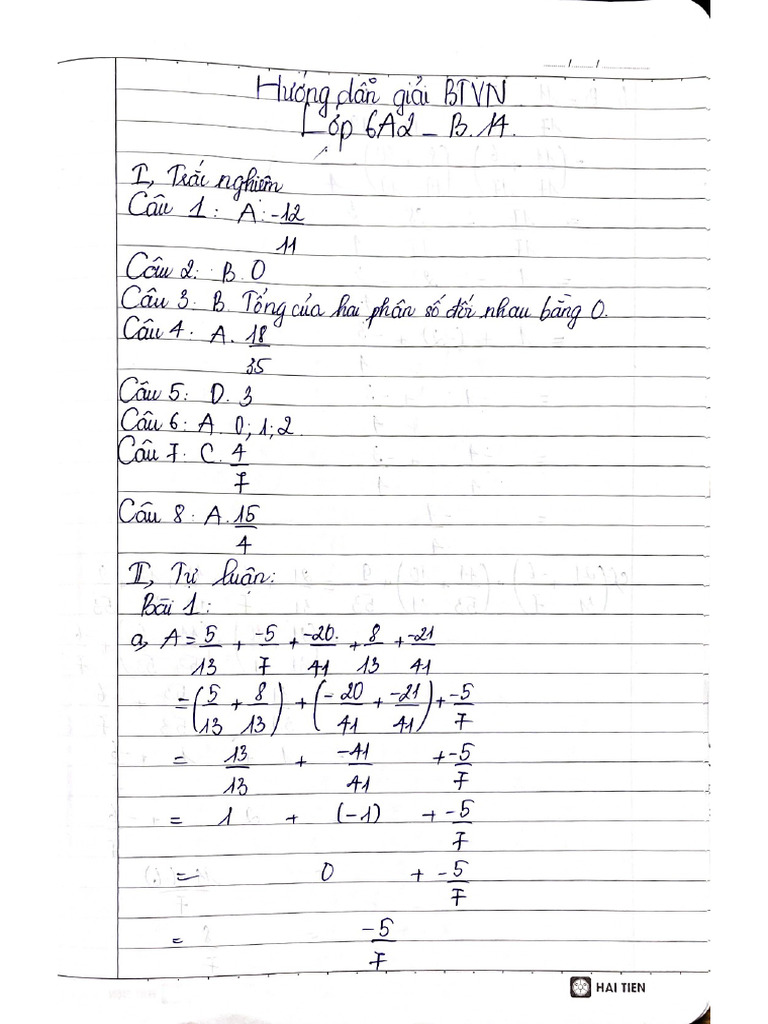 ...../...../..........
Hướng dẫn giải BTVN
Lớp 6A2 - B.14.
I, Trắc nghiệm
Câu 1: A. -12/11
Câu 2: B. 0
Câu 3: B. Tổng của hai phân số đối nhau bằng 0.
Câu 4: A. 18/35
Câu 5: D. 3
Câu 6: A. 0; 1; 2
Câu 7: C. 4/7
Câu 8: A. 15/4
II, Tự luận:
Bài 1:
a, A = 5/13 + -5/7 + -20/41 + 8/13 + -21/41
= (5/13 + 8/13) + (-20/41 + -21/41) + -5/7
= 13/13 + -41/41 + -5/7
= 1 + (-1) + -5/7
= 0 + -5/7
= -5/7
HAI TIEN